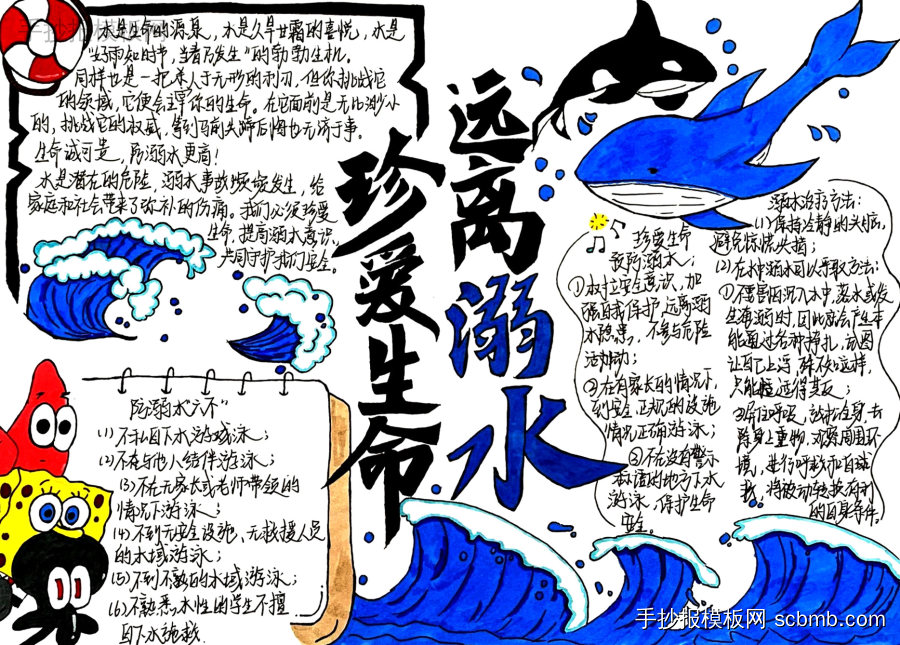 手抄报模板网
水是生命的源泉，水是久旱甘霖的喜悦，水是
"好雨知时节，当春乃发生"的勃勃生机。
同样也是一把杀人于无形的利刃，但你挑战它
的领域，它便会主宰你的生命。在它面前是无比渺小
的，挑战它的权威，等到马前失蹄后悔也无济于事。
生命诚可贵，防溺水更高！
水是潜在的危险，溺水事故频发发生，给
家庭和社会带来了弥补的伤痛。我们必须珍爱
生命，提高溺水意识，
共同守护我们安全。
远离溺水
珍爱生命
防溺水"六不"
(1)不私自下水游泳；
(2)不与他人结伴游泳；
(3)不在无家长或老师带领的
情况下游泳；
(4)不到无安全设施、无救援人员
的水域游泳；
(5)不到不熟的水域游泳；
(6)不熟悉水性的学生不擅
自下水施救.
珍爱生命
预防溺水：
①树立安全意识，加
强自我保护，远离溺
水隐患，不参与危险
活动；
②在有家长的情况下，
到安全正规的设施
情况正确游泳；
③不在没有警示
标语的地方下水
游泳，保护生命
安全。
溺水治疗方法：
(1)保持冷静的头脑，
避免惊慌失措；
(2)在水中溺水可以采取方法：
①不要因沉入水中，落水或发
生海溺时，因此就会产生本
能通过各种挣扎，试图
让自己上浮，殊不知这样，
只能适得其反；
②屏住呼吸，
身上重物，观察周围环
境，进行呼救和自救
救，将被动转换有利
的自身条件。
手抄报模板网 scbmb.com